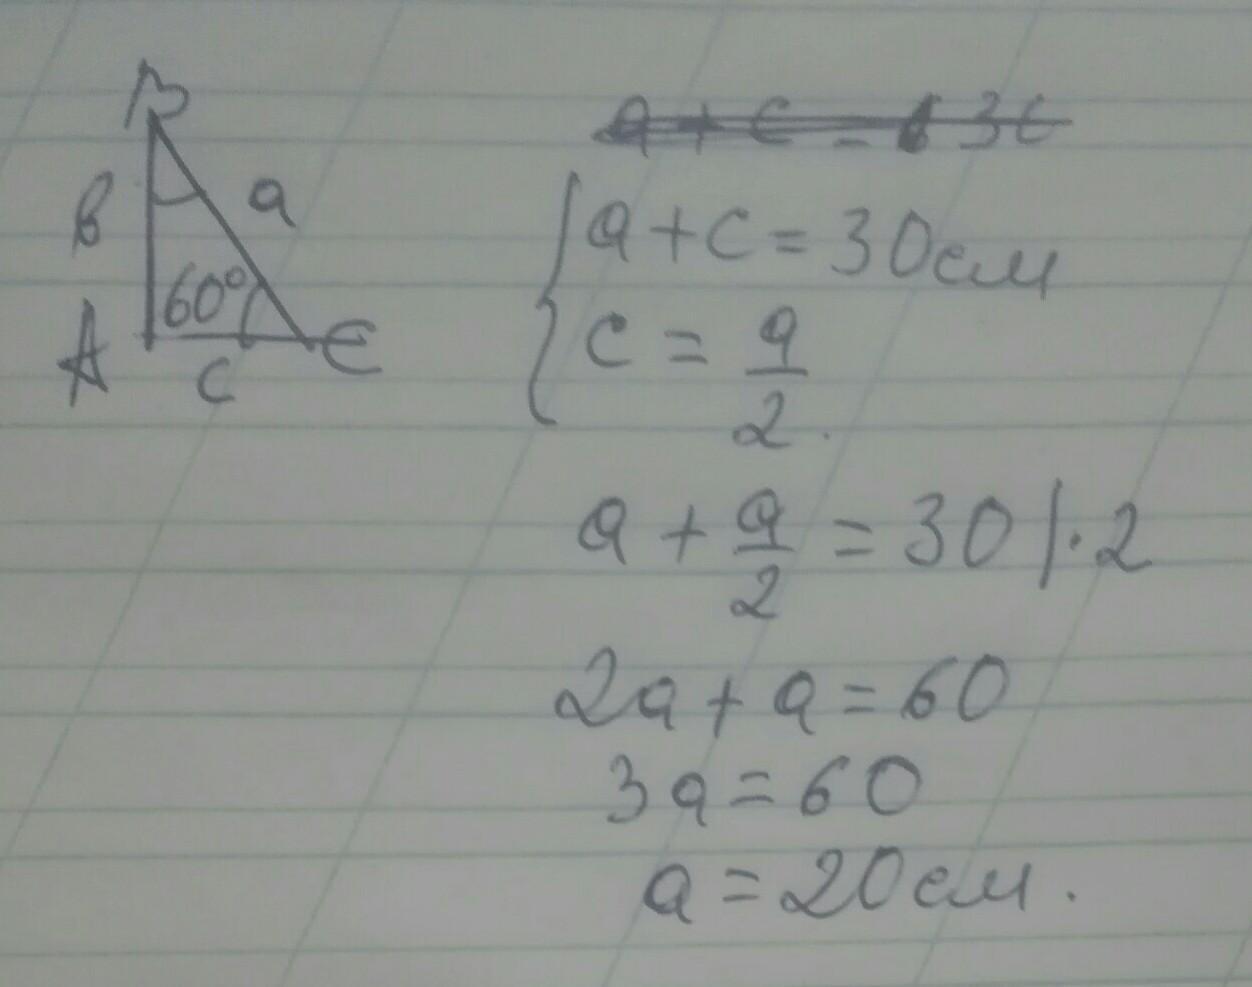 B
в a
60°
A c C
a + c = 30
a + c = 30 см
c = a/2.
a + a/2 = 30 |·2
2a + a = 60
3a = 60
a = 20 см.